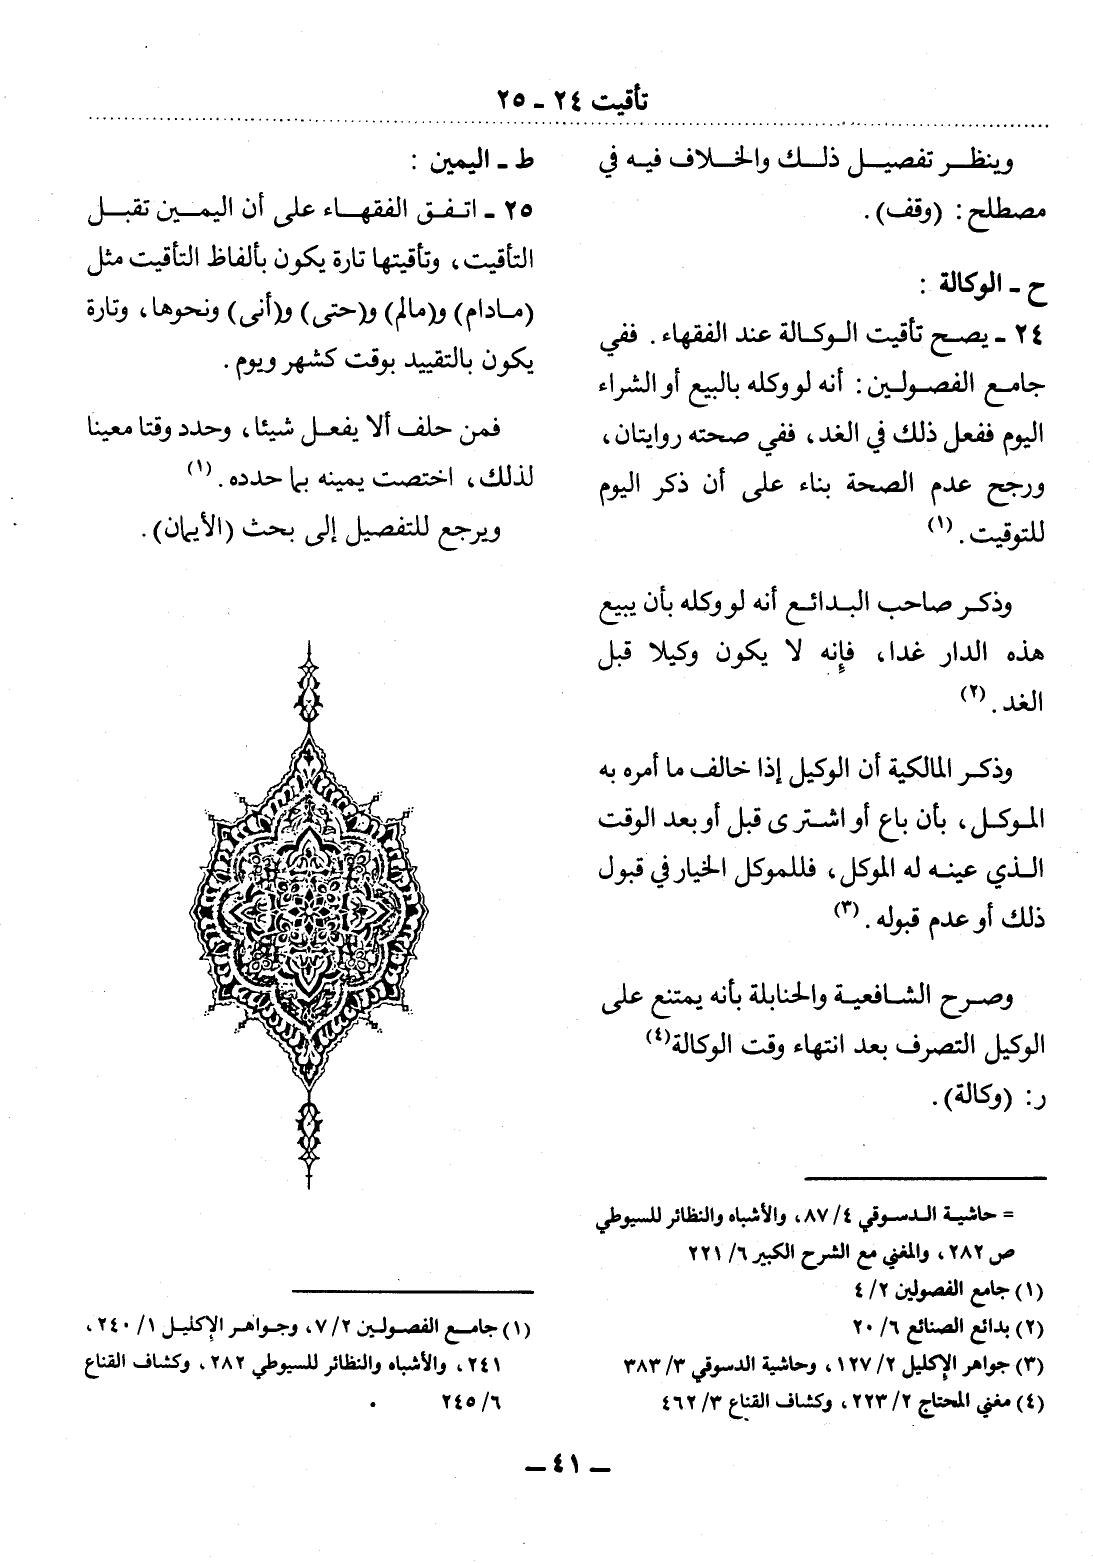 تأقيت ٢٤ - ٢٥
وينظر تفصيل ذلك والخلاف فيه في
مصطلح : (وقف) .
ح - الوكالة :
٢٤ - يصح تأقيت الوكالة عند الفقهاء . ففي
جامع الفصولين : أنه لو وكله بالبيع أو الشراء
اليوم ففعل ذلك في الغد، ففي صحته روايتان،
ورجح عدم الصحة بناء على أن ذكر اليوم
للتوقيت . (١)
وذكر صاحب البدائع أنه لو وكله بأن يبيع
هذه الدار غدا، فإنه لا يكون وكيلا قبل
الغد . (٢)
وذكر المالكية أن الوكيل إذا خالف ما أمره به
الموكل، بأن باع أو اشترى قبل أو بعد الوقت
الذي عينه له الموكل، فللموكل الخيار في قبول
ذلك أو عدم قبوله . (٣)
وصرح الشافعية والحنابلة بأنه يمتنع على
الوكيل التصرف بعد انتهاء وقت الوكالة (٤)
ر : (وكالة) .
= حاشية الدسوقي ٤/ ٨٧، والأشباه والنظائر للسيوطي
ص ٢٨٢، والمغني مع الشرح الكبير ٦/ ٢٢١
(١) جامع الفصولين ٢/ ٤
(٢) بدائع الصنائع ٦/ ٢٠
(٣) جواهر الإكليل ٢/ ١٢٧، وحاشية الدسوقي ٣/ ٣٨٣
(٤) مغني المحتاج ٢/ ٢٢٣، وكشاف القناع ٣/ ٤٦٢
ط - اليمين :
٢٥ - اتفق الفقهاء على أن اليمين تقبل
التأقيت، وتأقيتها تارة يكون بألفاظ التأقيت مثل
(مادام) و(مالم) و(حتى) و(أنى) ونحوها، وتارة
يكون بالتقييد بوقت كشهر ويوم .
فمن حلف ألا يفعل شيئا، وحدد وقتا معينا
لذلك، اختصت يمينه بما حدده . (١)
ويرجع للتفصيل إلى بحث (الأيمان) .
(١) جامع الفصولين ٢/ ٧، وجواهر الإكليل ١/ ٢٤٠،
٢٤١، والأشباه والنظائر للسيوطي ٢٨٢، وكشاف القناع
٦/ ٢٤٥
- ٤١ -